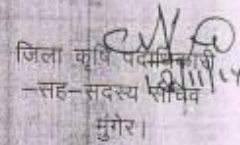 जिला कृषि पदाधिकारी
-सह-सदस्य सचिव
मुंगेर।